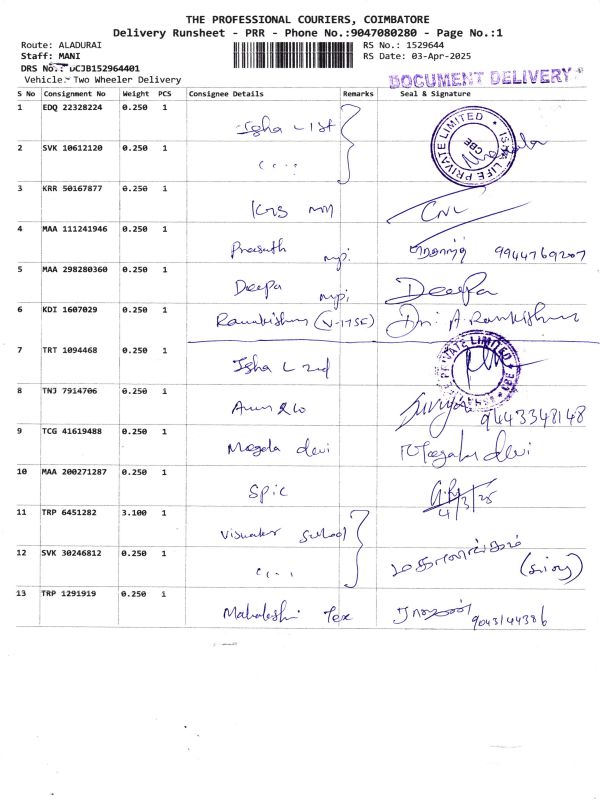 THE PROFESSIONAL COURIERS, COIMBATORE
Delivery Runsheet - PRR - Phone No.:9047080280 - Page No.:1
Route: ALADURAI RS No.: 1529644
Staff: MANI RS Date: 03-Apr-2025
DRS No.: DCJB152964401
Vehicle: Two Wheeler Delivery DOCUMENT DELIVERY
S No Consignment No Weight PCS Consignee Details Remarks Seal & Signature
1 EDQ 22328224 0.250 1
Isha L 1st
2 SVK 10612120 0.250 1
LIFE PRIVATE LIMITED CBE
3 KRR 50167877 0.250 1
4 MAA 111241946 0.250 1
Prasath 9944769207
5 MAA 298280360 0.250 1
Deepa Deepa
6 KDI 1607029 0.250 1
Ramkishun (V-175E) Dr. A. Ramkishun
7 TRT 1094468 0.250 1
Isha L 2nd PRIVATE LIMITED CBE
8 TNJ 7914706 0.250 1
Arun & co 9443348148
9 TCG 41619488 0.250 1
Magala devi Magala devi
10 MAA 200271287 0.250 1
Spic 4/3/25
11 TRP 6451282 3.100 1
School
12 SVK 30246812 0.250 1
13 TRP 1291919 0.250 1
Mahaleshi Tex 9043144386